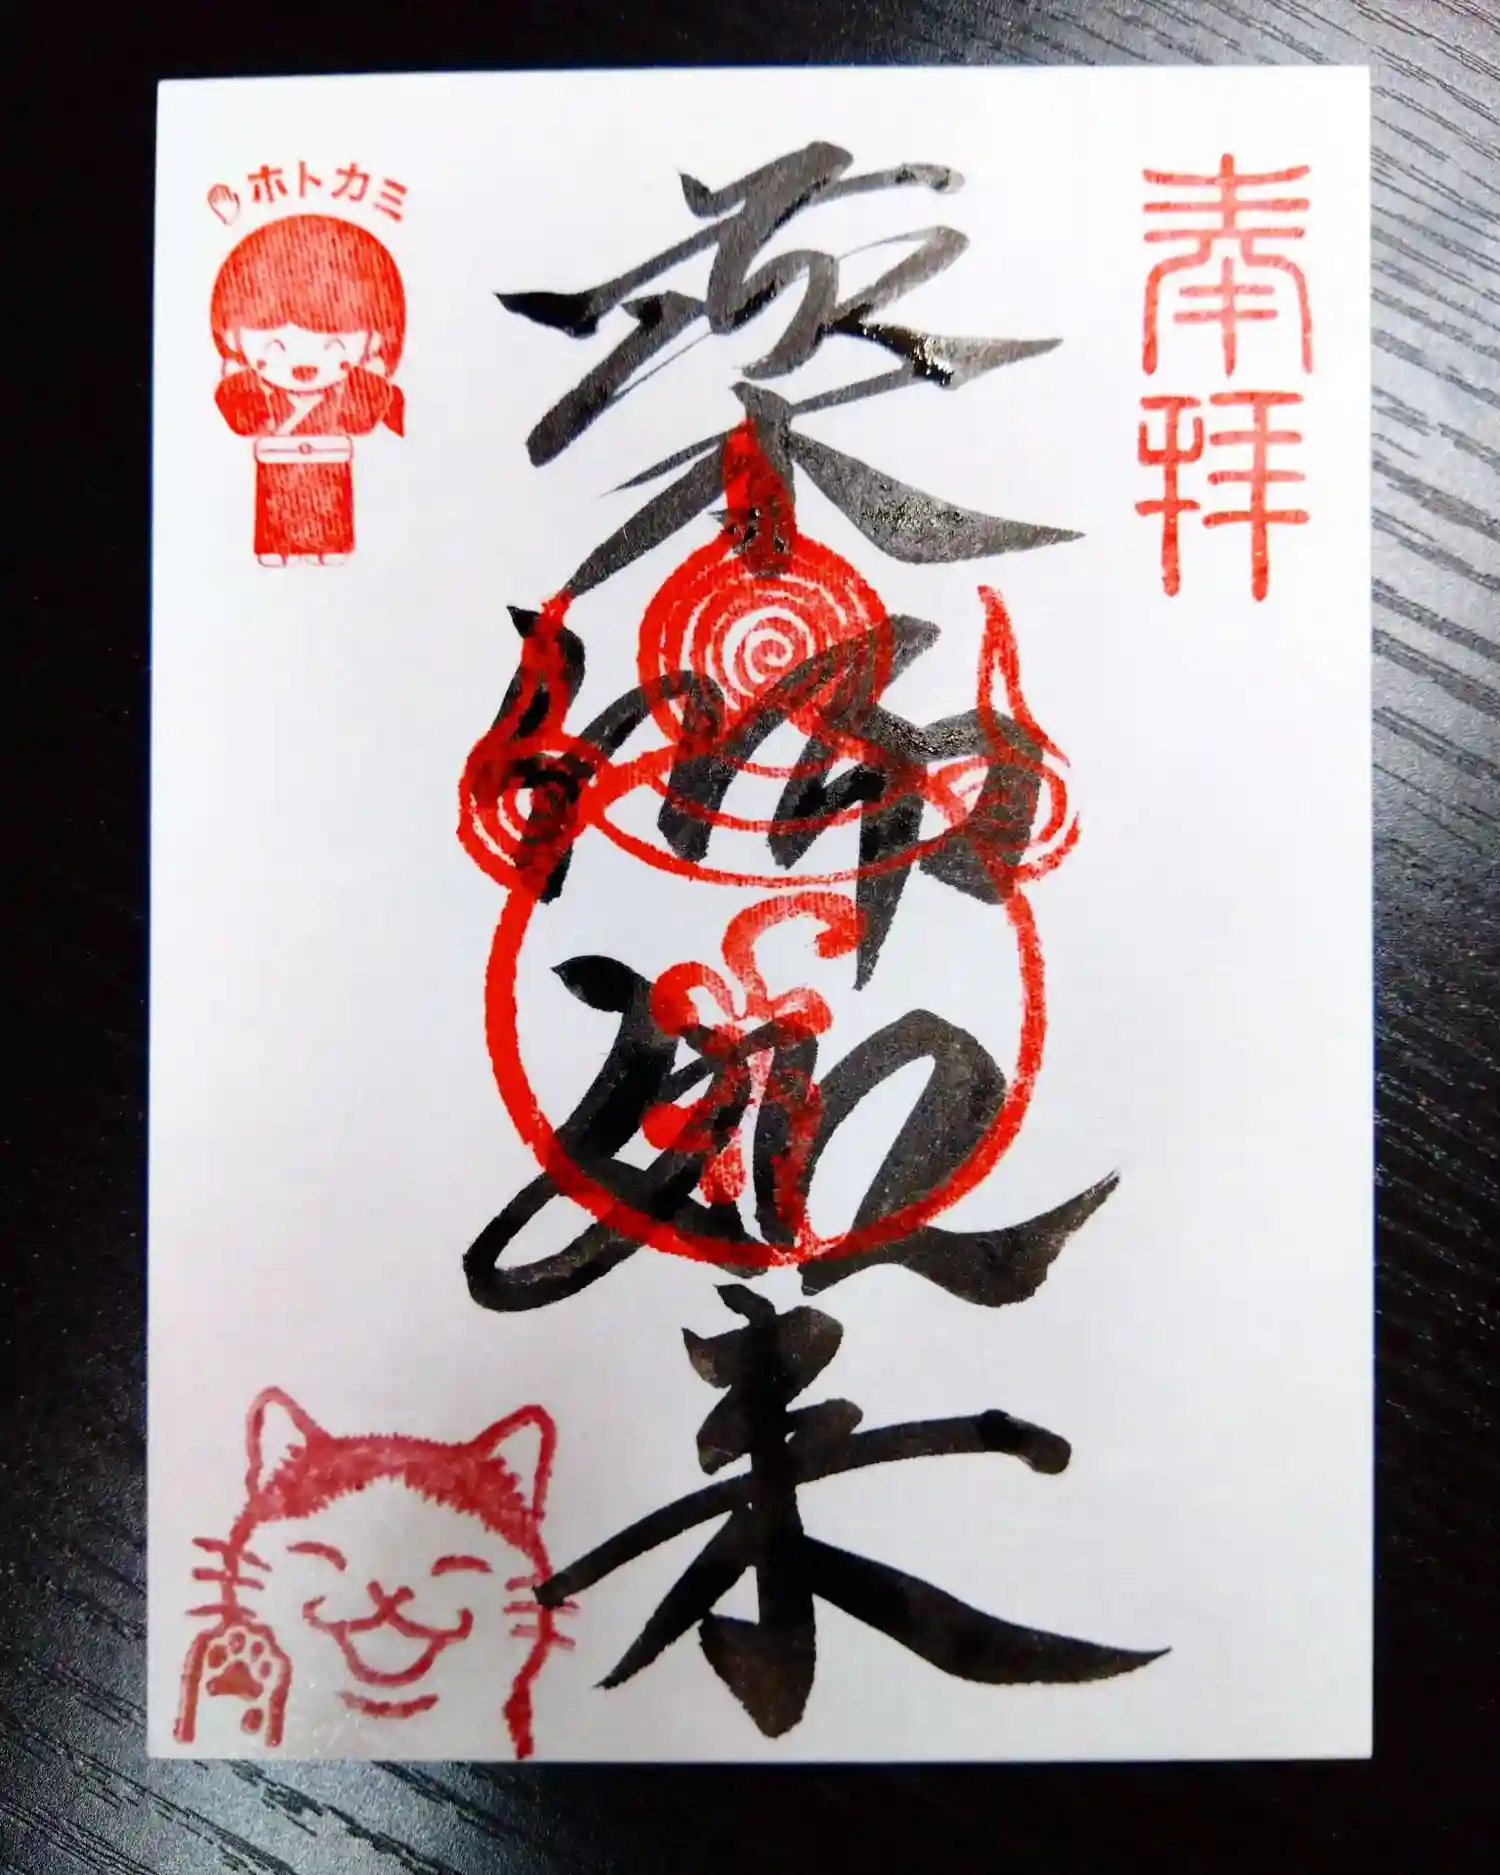 奉拝
薬師如来
ホトカミ